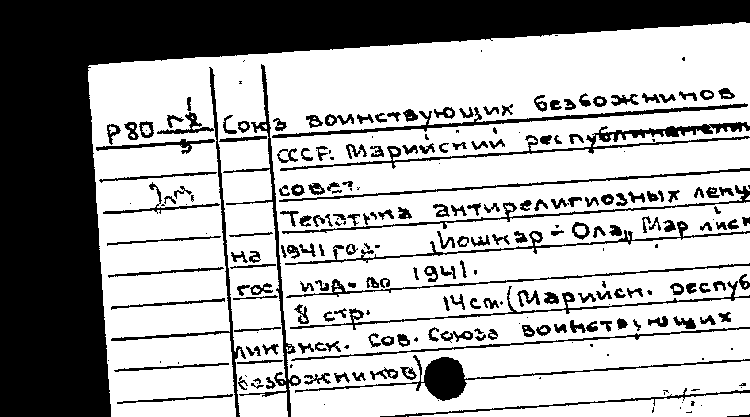 Р80 Союз воинствующих безбожников
СССР. Марийский республиканский
совет.
Тематика антирелигиозных лекц
на 1941 год. "Йошкар-Ола", Мар
гос. изд-во 1941.
8 стр. 14 см. (Марийск. респуб
ликанск. сов. Союза воинствующих
безбожников)